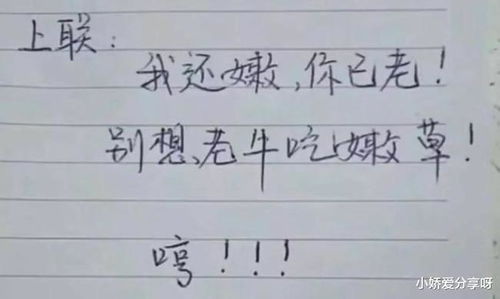 上联：
我还嫩，你已老！
别想，老牛吃嫩草！
哼！！！
小娇爱分享呀